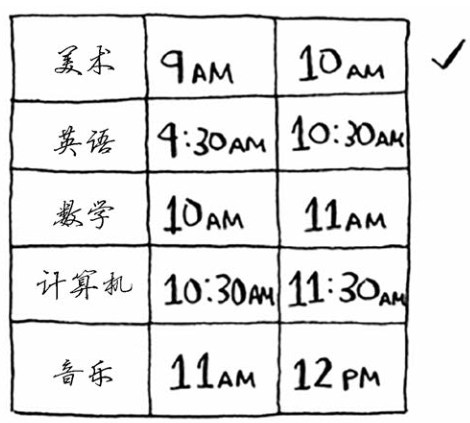 美术 9AM 10AM ✓
英语 9:30AM 10:30AM
数学 10AM 11AM
计算机 10:30AM 11:30AM
音乐 11AM 12PM